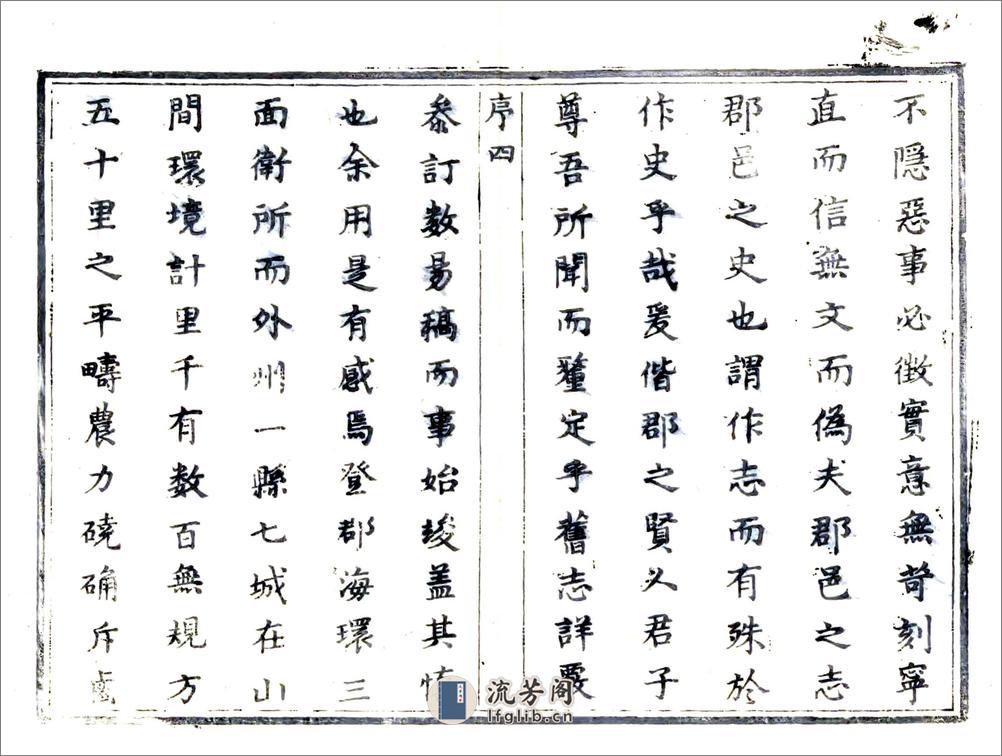 不隱惡事必徴實意無苛刻寧
直而信無文而偽夫郡邑之志
郡邑之史也謂作志而有殊於
作史乎哉爰偕郡之賢人君子
尊吾所聞而釐定乎舊志詳覈
序四
叅訂数易稿而事始竣盖其慎
也余用是有感焉登郡海環三
面衛所而外州一縣七城在山
間環境計里千有数百無規方
五十里之平疇農力磽确斥鹵
流芳阁
lfglib.cn